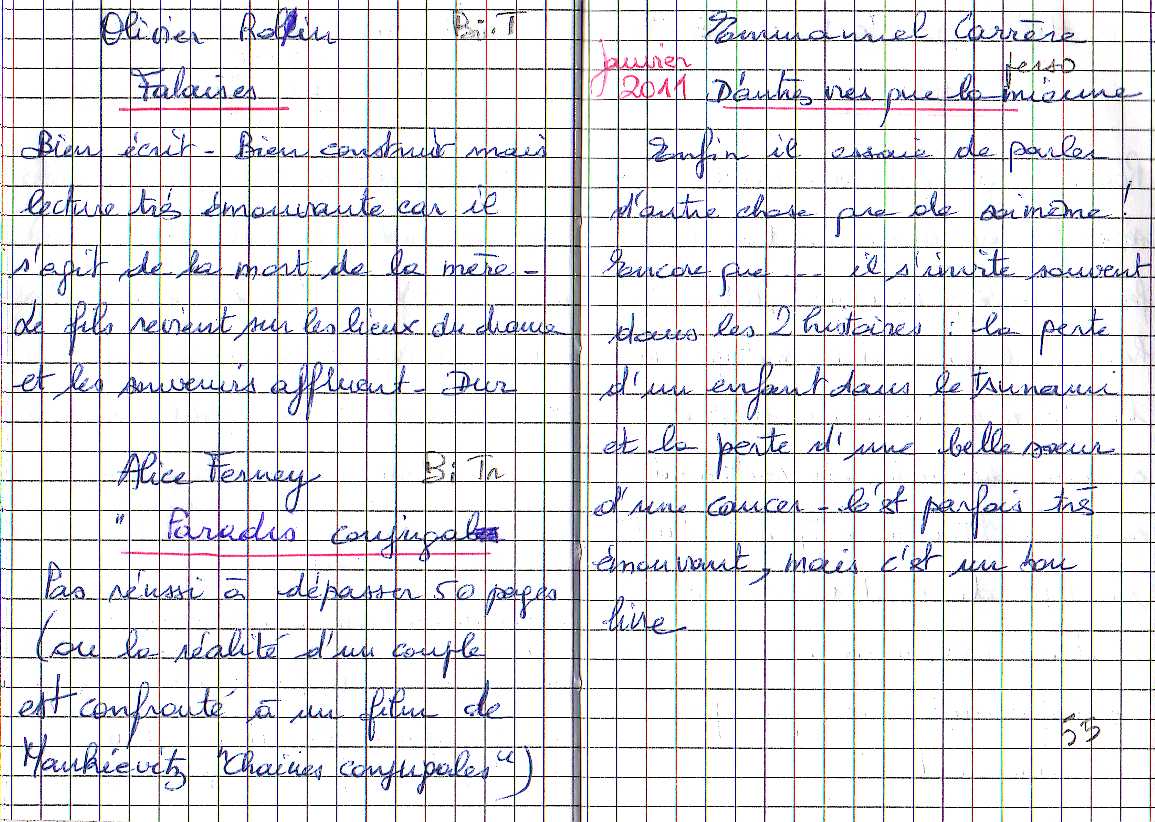 Olivier Rollin Bi:T
Falaises
Bien écrit - Bien construit mais
lecture très émouvante car il
s'agit de la mort de la mère -
Le fils revient sur les lieux du drame
et les souvenirs affluent - Dur
Alice Ferney Bi Tr
" Paradis conjugal
Pas réussi à dépasser 50 pages
(ou la réalité d'un couple
est confronté à un film de
Mankiévitz "Chaines conjugales")
Emmanuel Carrère
janvier
2011 D'autres vies que la mienne
Enfin il essaie de parler
d'autre chose que de soi même !
Encore que -- il s'invite souvent
dans les 2 histoires : la perte
d'un enfant dans le Tsunami
et la perte d'une belle soeur
d'un cancer - C'est parfois très
émouvant, mais c'est un bon
livre
55